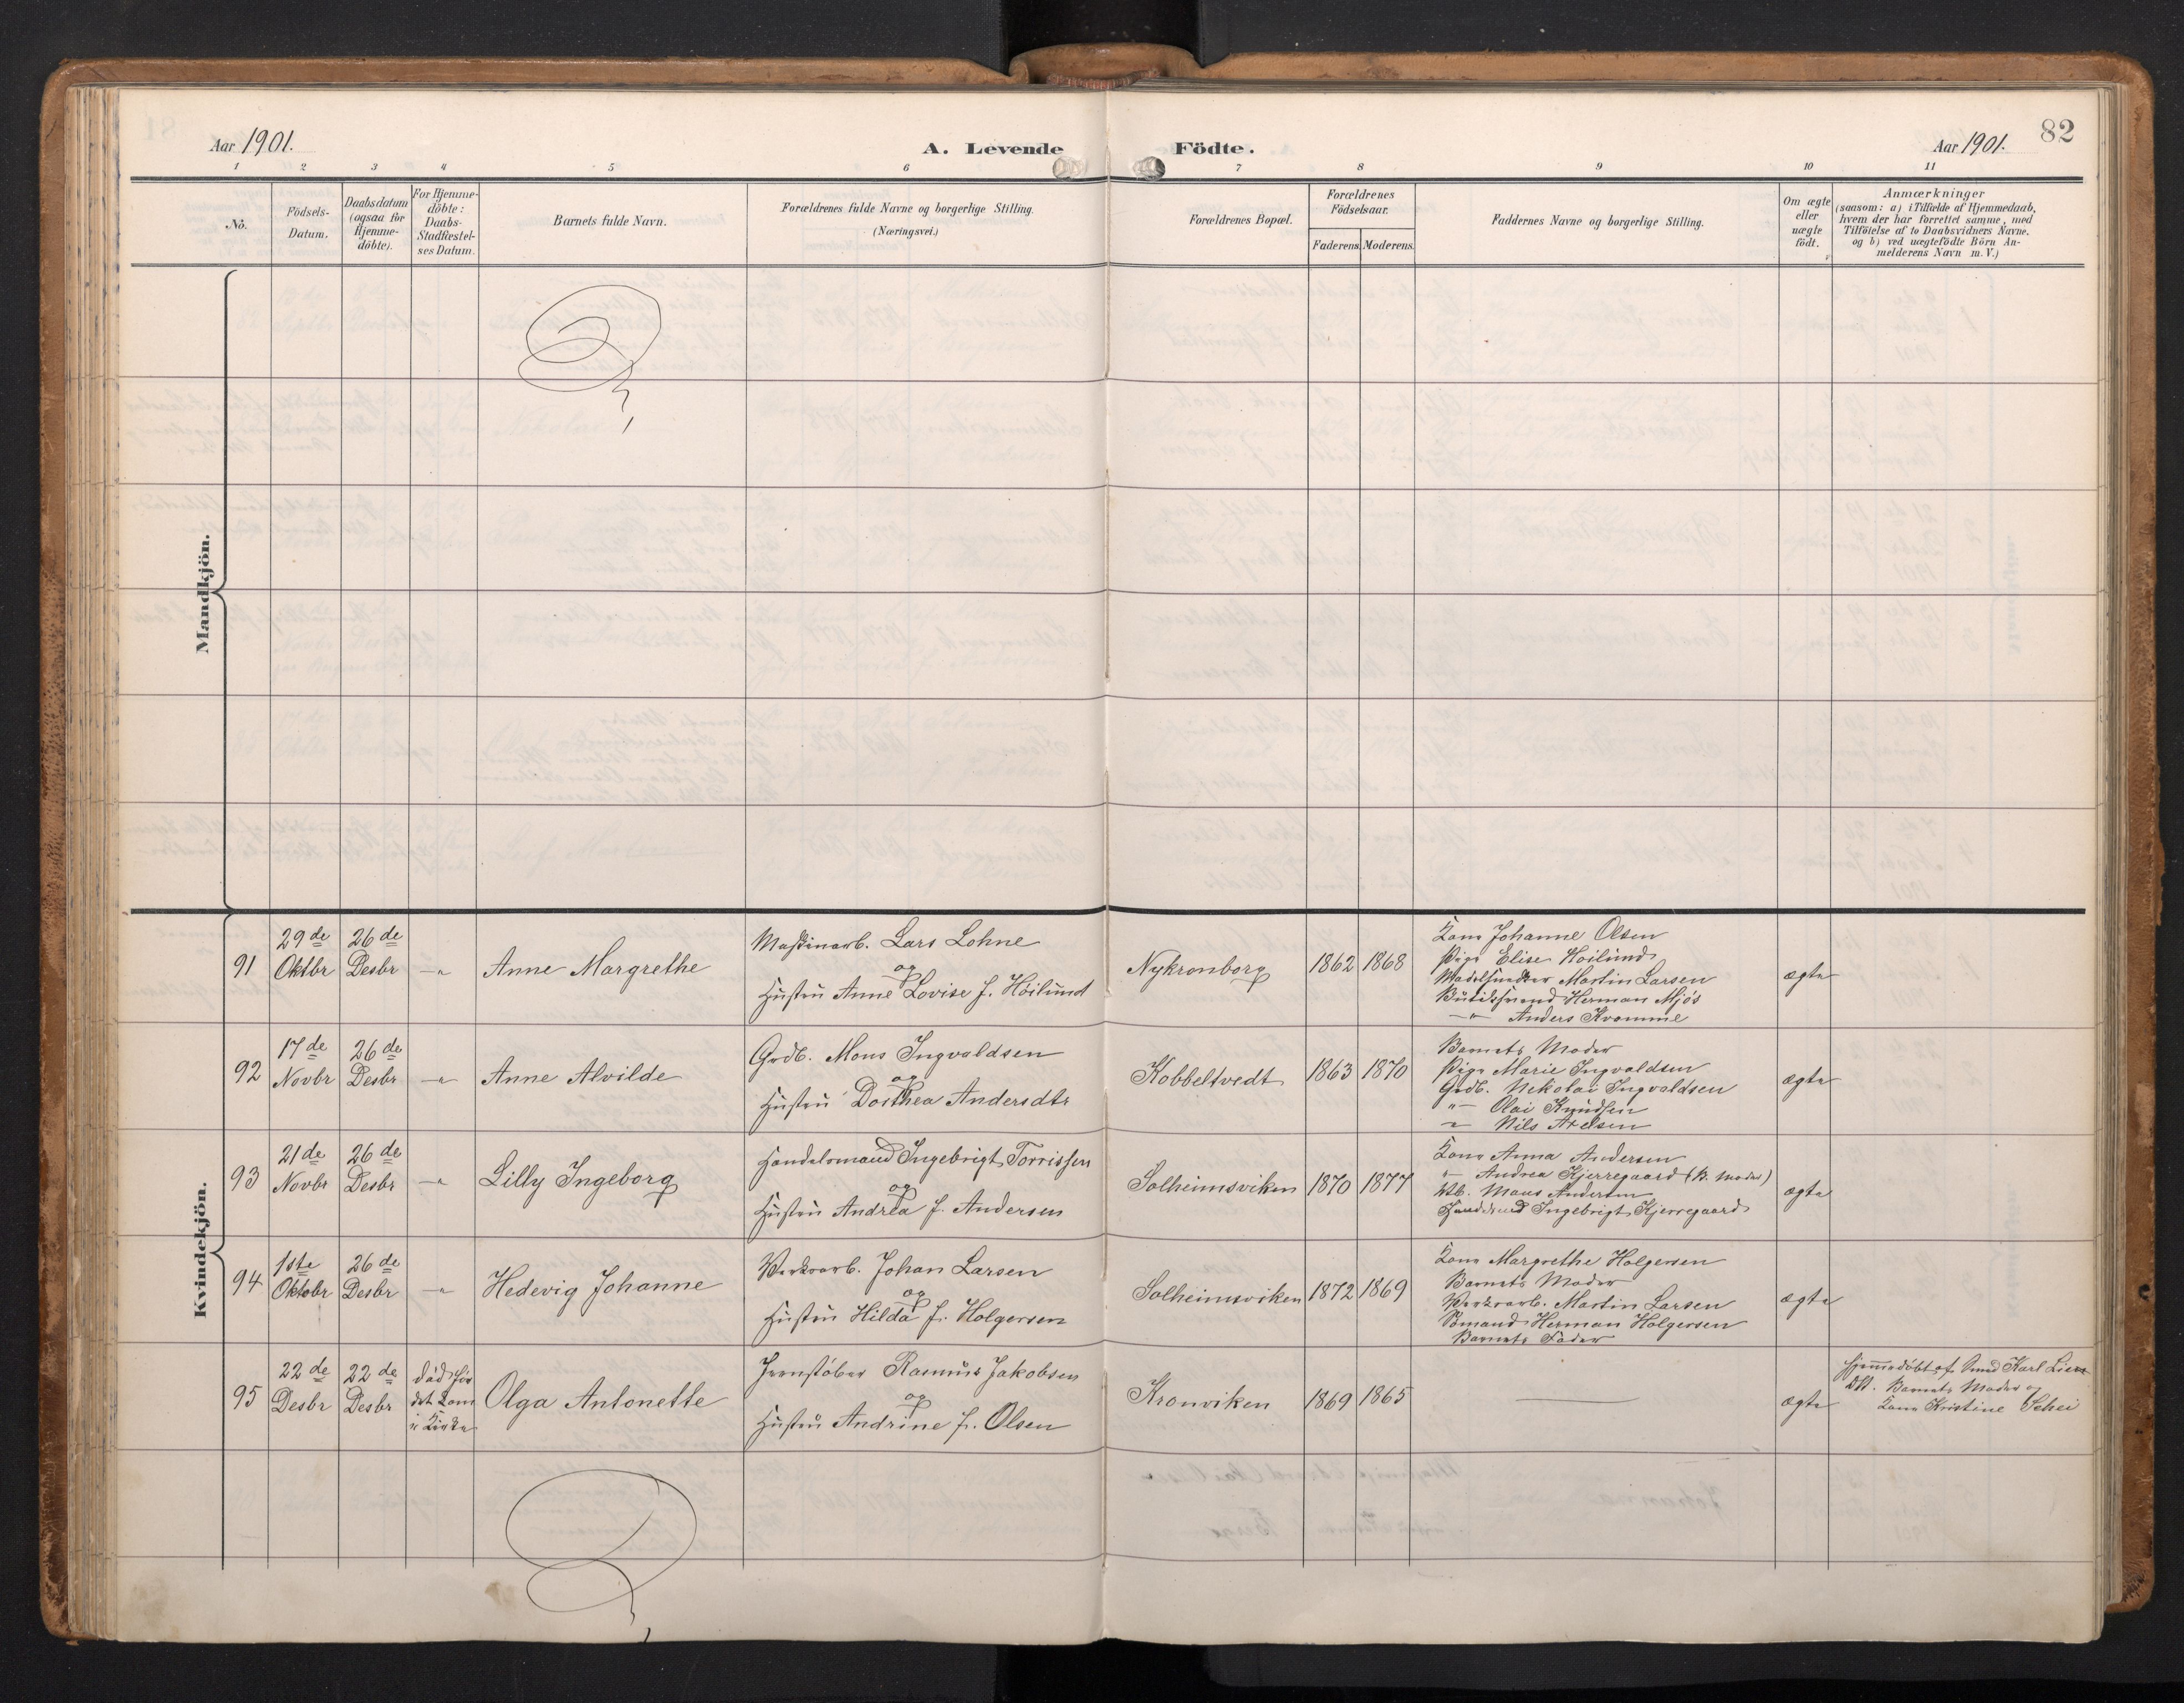 82
Aar 1901.
A. Levende Födte.
Aar 1901.
1 2 3 4 5 6 7 8 9 10 11
No.
Födsels-
Datum.
Daabsdatum
(ogsaa for
Hjemme-
döbte).
For Hjemme-
döbte:
Daabs-
Stadfæstel-
ses Datum.
Barnets fulde Navn.
Forældrenes fulde Navne og borgerlige Stilling.
(Næringsvei.)
Forældrenes Bopæl.
Forældrenes
Födselsaar.
Faderens. Moderens.
Faddernes Navne og borgerlige Stilling.
Om ægte
eller
uægte
födt.
Anmærkninger
(saasom: a) i Tilfælde af Hjemmedaab,
hvem der har forrettet samme, med
Tilföielse af to Daabsvidners Navne.
og b) ved uægtefödte Börn An-
melderens Navn m. V.)
Mandkjön.
Kvindekjön.
91
29de
Oktbr
26de
Desbr
-"-
Anne Margrethe
Maskinarb. Lars Lohne
og
Hustru Anne Lovise f. Höilund
Nykronborg
1862 1868
Kone Johanne Olsen
Pige Elise Höilund
Martin Larsen
Herman Mjös
-"- Anders Kvamme
ægte
92
17de
Novbr
26de
Desbr
-"-
Anne Alvilde
Grdb. Mons Ingvaldsen
og
Hustru Dorthea Andersdtr
Kobbeltvedt
1863 1870
Barnets Moder
Pige Marie Ingvaldsen
Grdb. Nikolai Ingvaldsen
"- Olai Knudsen
-"- Nils Axelsen
ægte
93
21de
Novbr
26de
Desbr
-"-
Lilly Ingeborg
Handelsmand Ingebrigt Torrissen
og
Hustru Andrea f. Andersen
Solheimsviken
1870 1877
Kone Anna Andersen
"- Andrea Kjerregaard (B. Moder)
Mons Andersen
Handelsmd Ingebrigt Kjerregaard
ægte
94
1ste
Oktobr
26de
Desbr
-"-
Hedevig Johanne
Værksarb. Johan Larsen
og
Hustru Hilda f. Holgersen
Solheimsviken
1872 1869
Kone Margrethe Holgersen
Barnets Moder
Værksarb. Martin Larsen
Sömand Herman Holgersen
Barnets Fader
ægte
95
22de
Desbr
22de
Desbr
död för
det kom
i Kirke
Olga Antonette
Jernstöber Rasmus Jakobsen
og
Hustru Andrine f. Olsen
Kronviken
1869 1865
—
ægte
Hjemmedöbt af Smed Karl Lien
Barnets Moder og
Kone Kristine Schei